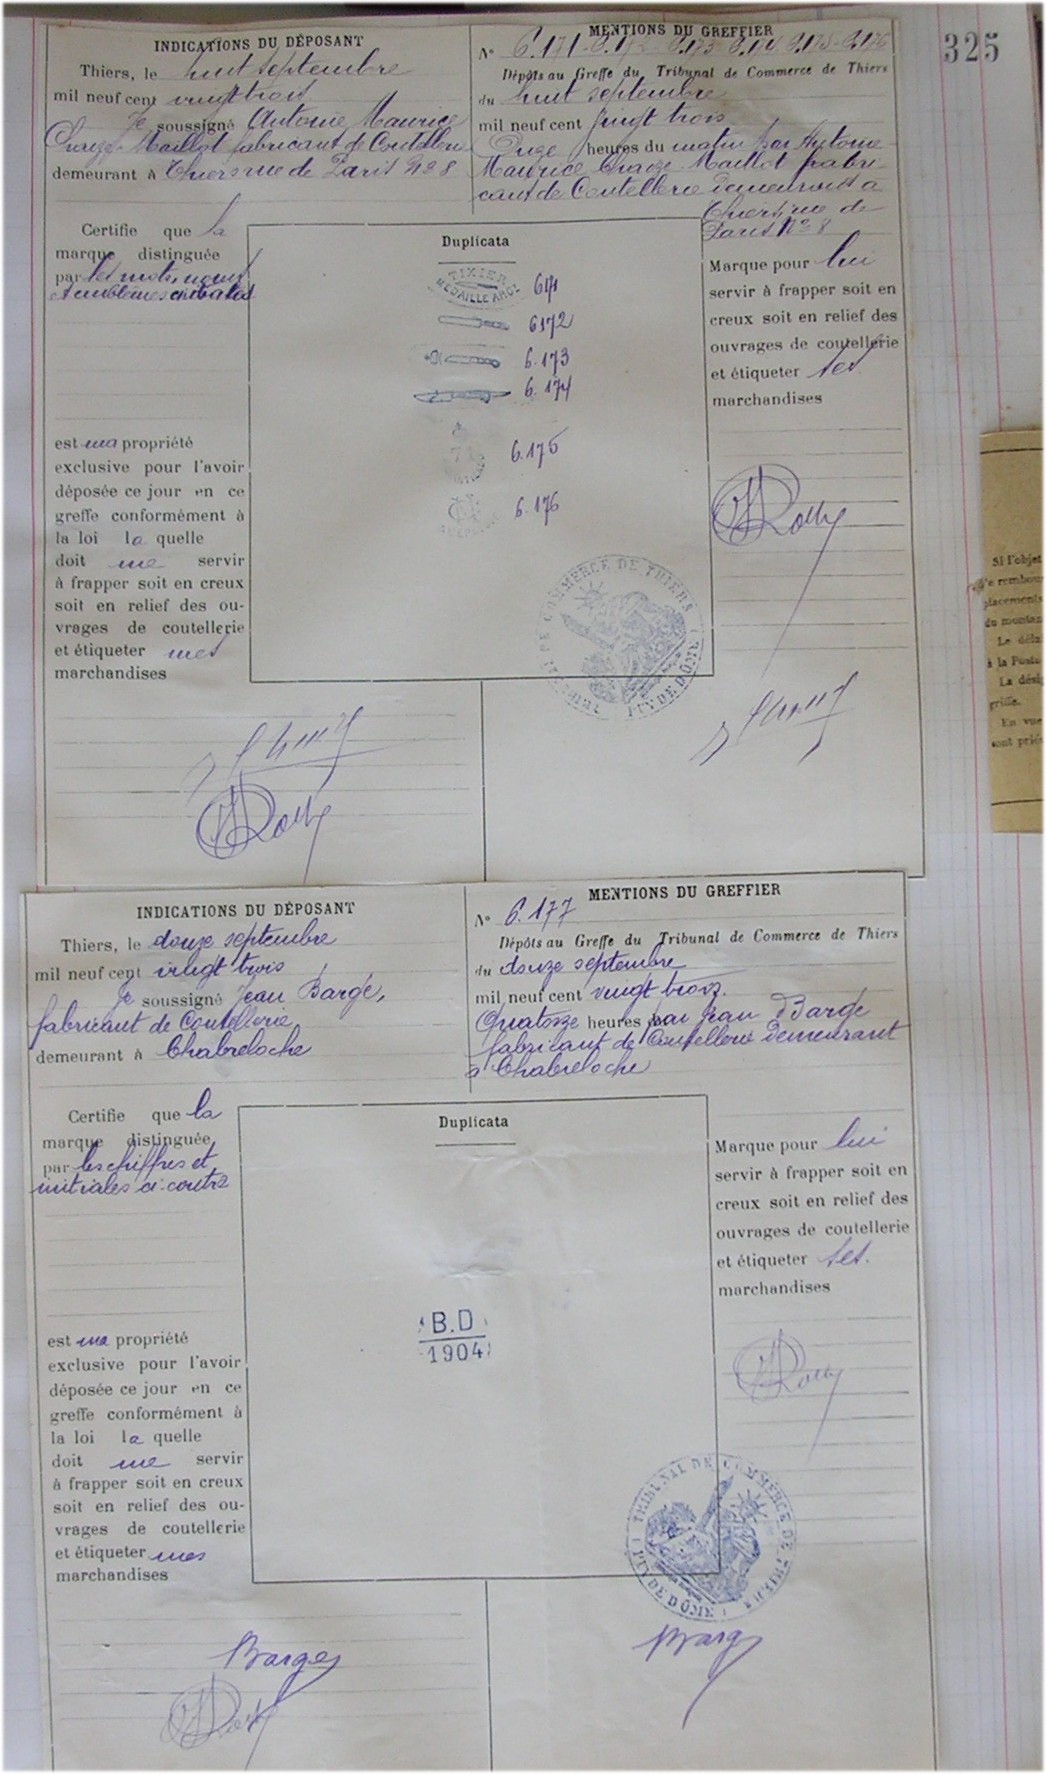 325
INDICATIONS DU DÉPOSANT
Thiers, le huit septembre
mil neuf cent vingt trois
Je soussigné Antoine Maurice
Chaze-Maillot fabricant de Coutellerie
demeurant à Thiers rue de Paris No 8
MENTIONS DU GREFFIER
No 6.171 - 6.172 - 6.173 - 6.174 6.175 - 6.176
Dépôts au Greffe du Tribunal de Commerce de Thiers
du huit septembre
mil neuf cent vingt trois
Onze heures du matin par Antoine
Maurice Chaze-Maillot fabri-
cant de Coutellerie demeurant à
Thiers rue de
Paris No 8
Certifie que la
marque distinguée
par les mots, noms
et emblèmes
est ma propriété
exclusive pour l'avoir
déposée ce jour en ce
greffe conformément à
la loi la quelle
doit me servir
à frapper soit en creux
soit en relief des ou-
vrages de coutellerie
et étiqueter mes
marchandises
Duplicata
TIXIER
MÉDAILLE ARGT 6171
6172
6.173
6.174
71 6.175
6.176
TRIBUNAL DE COMMERCE DE THIERS
PUY DE DÔME
Marque pour lui
servir à frapper soit en
creux soit en relief des
ouvrages de coutellerie
et étiqueter ses
marchandises
Si l'objet
placements
du montan
Le déla
à la Poste
La dési
griffe.
En vue
sont prié
INDICATIONS DU DÉPOSANT
Thiers, le douze septembre
mil neuf cent vingt trois
Je soussigné Jean Barge,
fabricant de Coutellerie
demeurant à Chabreloche
MENTIONS DU GREFFIER
No 6.177
Dépôts au Greffe du Tribunal de Commerce de Thiers
du douze septembre
mil neuf cent vingt trois.
Quatorze heures par Jean Barge
fabricant de Coutellerie demeurant
à Chabreloche
Certifie que la
marque distinguée
par les chiffres et
initiales ci-contre
est ma propriété
exclusive pour l'avoir
déposée ce jour en ce
greffe conformément à
la loi la quelle
doit me servir
à frapper soit en creux
soit en relief des ou-
vrages de coutellerie
et étiqueter mes
marchandises
Duplicata
B.D
1904
TRIBUNAL DE COMMERCE DE THIERS
PUY DE DÔME
Marque pour lui
servir à frapper soit en
creux soit en relief des
ouvrages de coutellerie
et étiqueter ses
marchandises
Barge
Barge